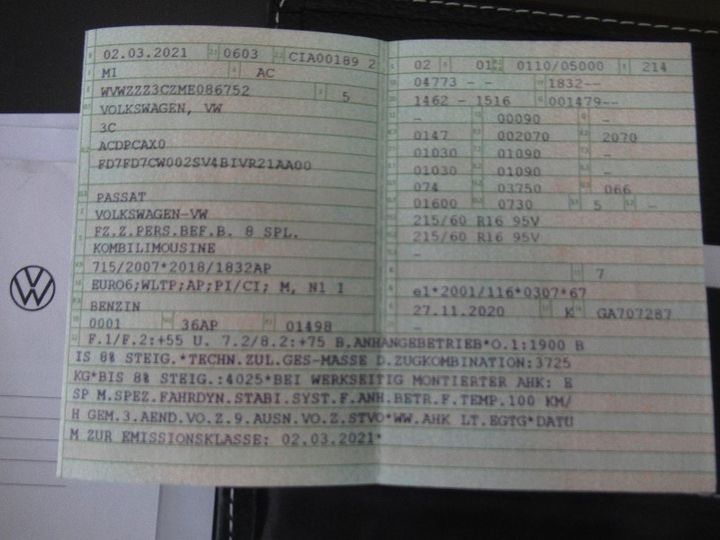 02.03.2021 0603 CIA00189 2
MI AC
WVWZZZ3CZME086752 5
VOLKSWAGEN, VW
3C
ACDPCAX0
FD7FD7CW002SV4BIVR21AA00
PASSAT
VOLKSWAGEN-VW
FZ.Z.PERS.BEF.B. 8 SPL.
KOMBILIMOUSINE
715/2007*2018/1832AP
EURO6;WLTP;AP;PI/CI; M, N1 I
BENZIN
0001 36AP 01498
02 01 0110/05000 214
04773 - - 1832--
1462 - 1516 001479--
- 00090 -
0147 002070 2070
01030 01090 -
01030 01090 -
074 03750 066
01600 0730 5 -
215/60 R16 95V
215/60 R16 95V
-
7
e1*2001/116*0307*67
27.11.2020 K GA707287
-
F.1/F.2:+55 U. 7.2/8.2:+75 B.ANHANGEBETRIEB*O.1:1900 B
IS 8% STEIG.*TECHN.ZUL.GES-MASSE D.ZUGKOMBINATION:3725
KG*BIS 8% STEIG.:4025*BEI WERKSEITIG MONTIERTER AHK: E
SP M.SPEZ.FAHRDYN.STABI.SYST.F.ANH.BETR.F.TEMP.100 KM/
H GEM.3.AEND.VO.Z.9.AUSN.VO.Z.STVO*WW.AHK LT.EGTG*DATU
M ZUR EMISSIONSKLASSE: 02.03.2021*